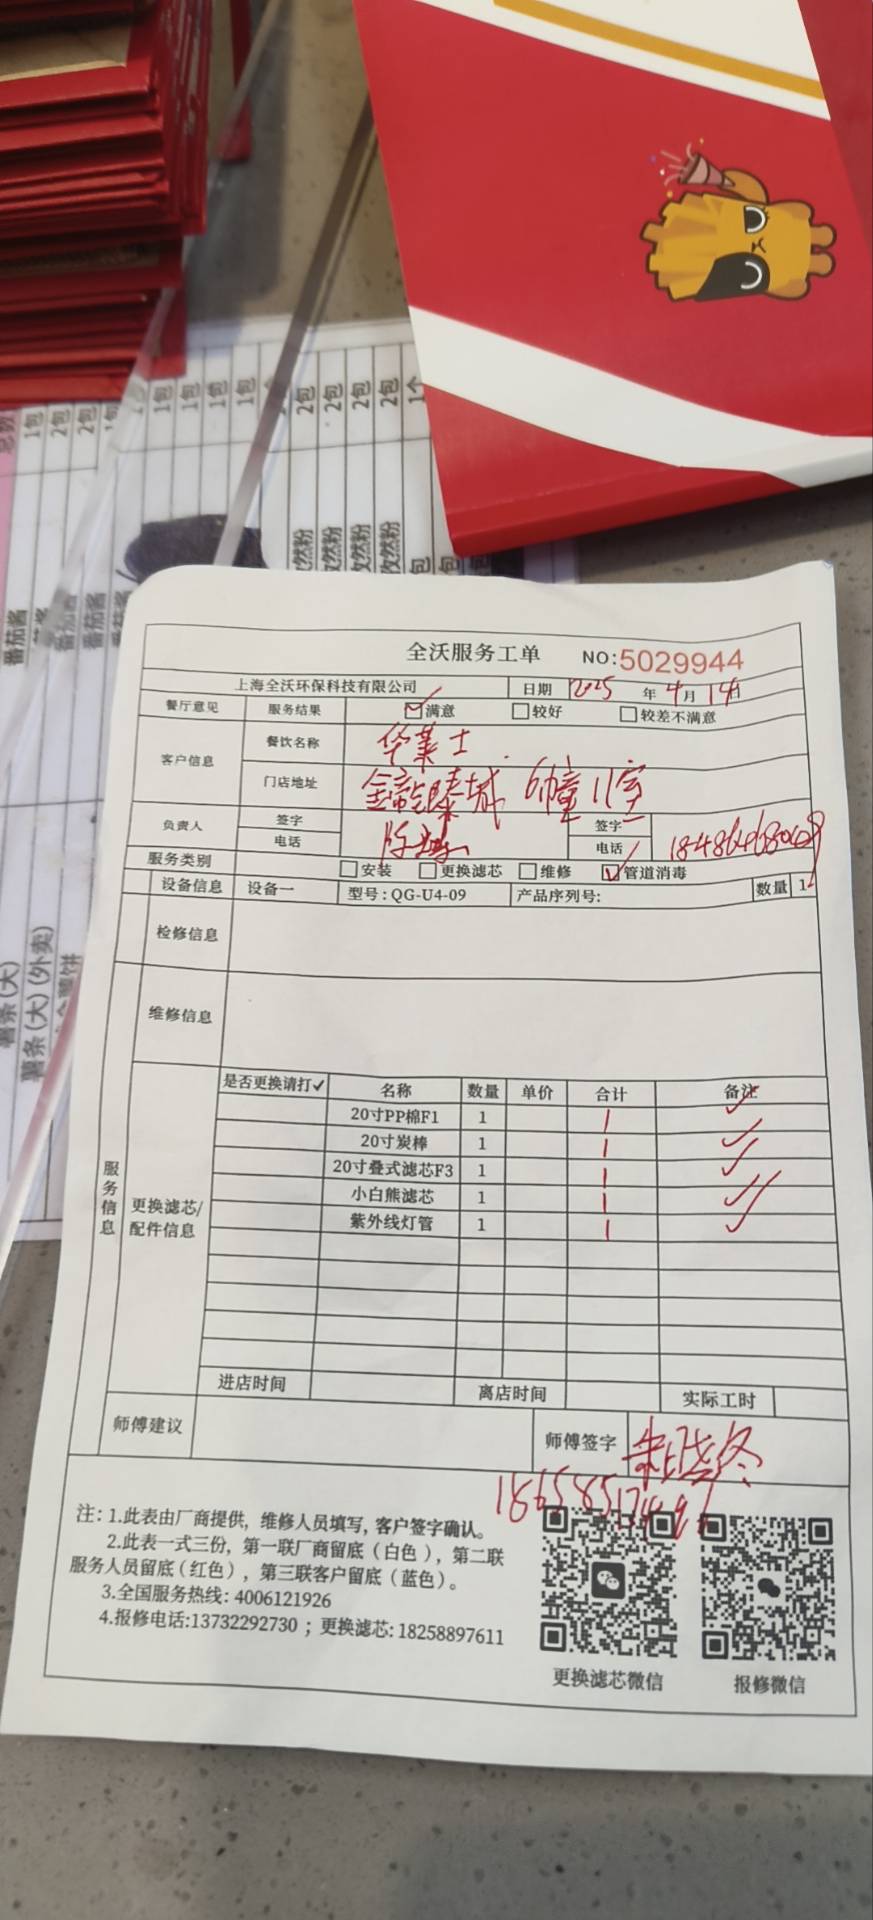 全沃服务工单 NO:5029944
上海全沃环保科技有限公司 日期 2025 年 4 月 14 日
餐厅意见 服务结果 满意 较好 较差不满意
客户信息 餐饮名称 华莱士
门店地址 金帝能臻城 6幢11室
负责人 签字 签字
电话 电话
服务类别 安装 更换滤芯 维修 管道消毒
设备信息 设备一 型号:QG-U4-09 产品序列号: 数量 1
检修信息
维修信息
服务信息
更换滤芯/配件信息
是否更换请打✓ 名称 数量 单价 合计 备注
20寸PP棉F1 1 1 ✓
20寸炭棒 1 1 ✓
20寸叠式滤芯F3 1 1 ✓
小白熊滤芯 1 1 ✓✓
紫外线灯管 1 1 ✓
进店时间 离店时间 实际工时
师傅建议 师傅签字 朱晓冬
注: 1.此表由厂商提供，维修人员填写，客户签字确认。
2.此表一式三份，第一联厂商留底（白色），第二联
服务人员留底（红色），第三联客户留底（蓝色）。
3.全国服务热线: 4006121926
4.报修电话:13732292730；更换滤芯: 18258897611
更换滤芯微信 报修微信
总数
1包
2包
2包
1包
1包
1包
1包
2包
2包
2包
2包
1个
番茄酱
番茄酱
番茄酱
孜然粉
孜然粉
孜然粉
孜然粉
薯条(大)
薯条(大)(外卖)